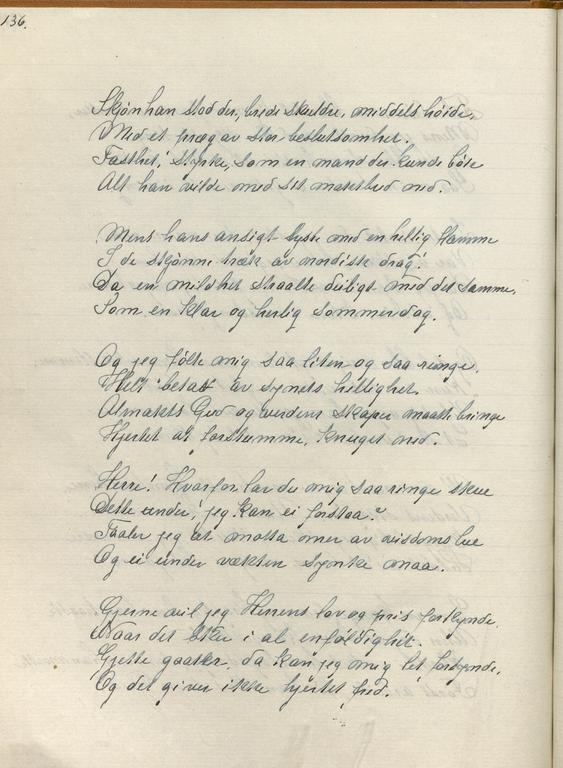 136.
Skjøn han stod der, brede skuldre, middels høide,
Med et præg av stor beslutsomhet.
Fasthet, styrke, som en mand der kunde bøie
Alt han vilde med sit magtbud ned.
Mens hans ansigt lyste med en hellig flamme
I de skjønne træk av nordiske drag!
Da en mildhet straalte deiligt med det samme,
Som en klar og herlig sommerdag.
Og jeg følte mig saa liten og saa ringe,
Helt betatt av synets hellighet.
Almakts Gud og verdens skaper maatte bringe
Hjertet at forstumme, knuget ned.
Herre! Hvorfor lar du mig saa ringe skue
Dette under, jeg kan ei forstaa?
Taaler jeg at motta mer av visdoms lue
Og ei under vækten synke maa.
Gjerne vil jeg Herrens lov og pris forkynde,
Naar det sker i al enfoldighet.
Gjette gaater, da kan jeg mig let forsynde,
Og det giver ikke hjertet fred.